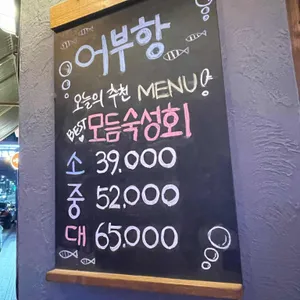 어부항
오늘의 추천 MENU
BEST 모듬숙성회
소 39,000
중 52,000
대 65,000